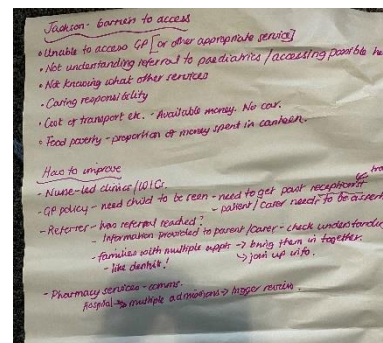 Jackson - barriers to access
• Unable to access GP [or other appropriate service]
• Not understanding referral to paediatrics / accessing possible
• Not knowing what other services
• Caring responsibility
• Cost of transport etc. - Available money. No car.
• Food poverty - proportion of money spent in canteen.
How to improve
- Nurse-led clinics / WIC.
- GP policy - need child to be seen - need to get past receptionist
- patient / carer needs to be
- Referrer - has referral reached?
- Information provided to parent/carer - check understanding
- families with multiple appts → bring them in together.
- like dentist! ↳ join up info.
- Pharmacy services - comms.
Hospital → multiple admissions → trigger review.